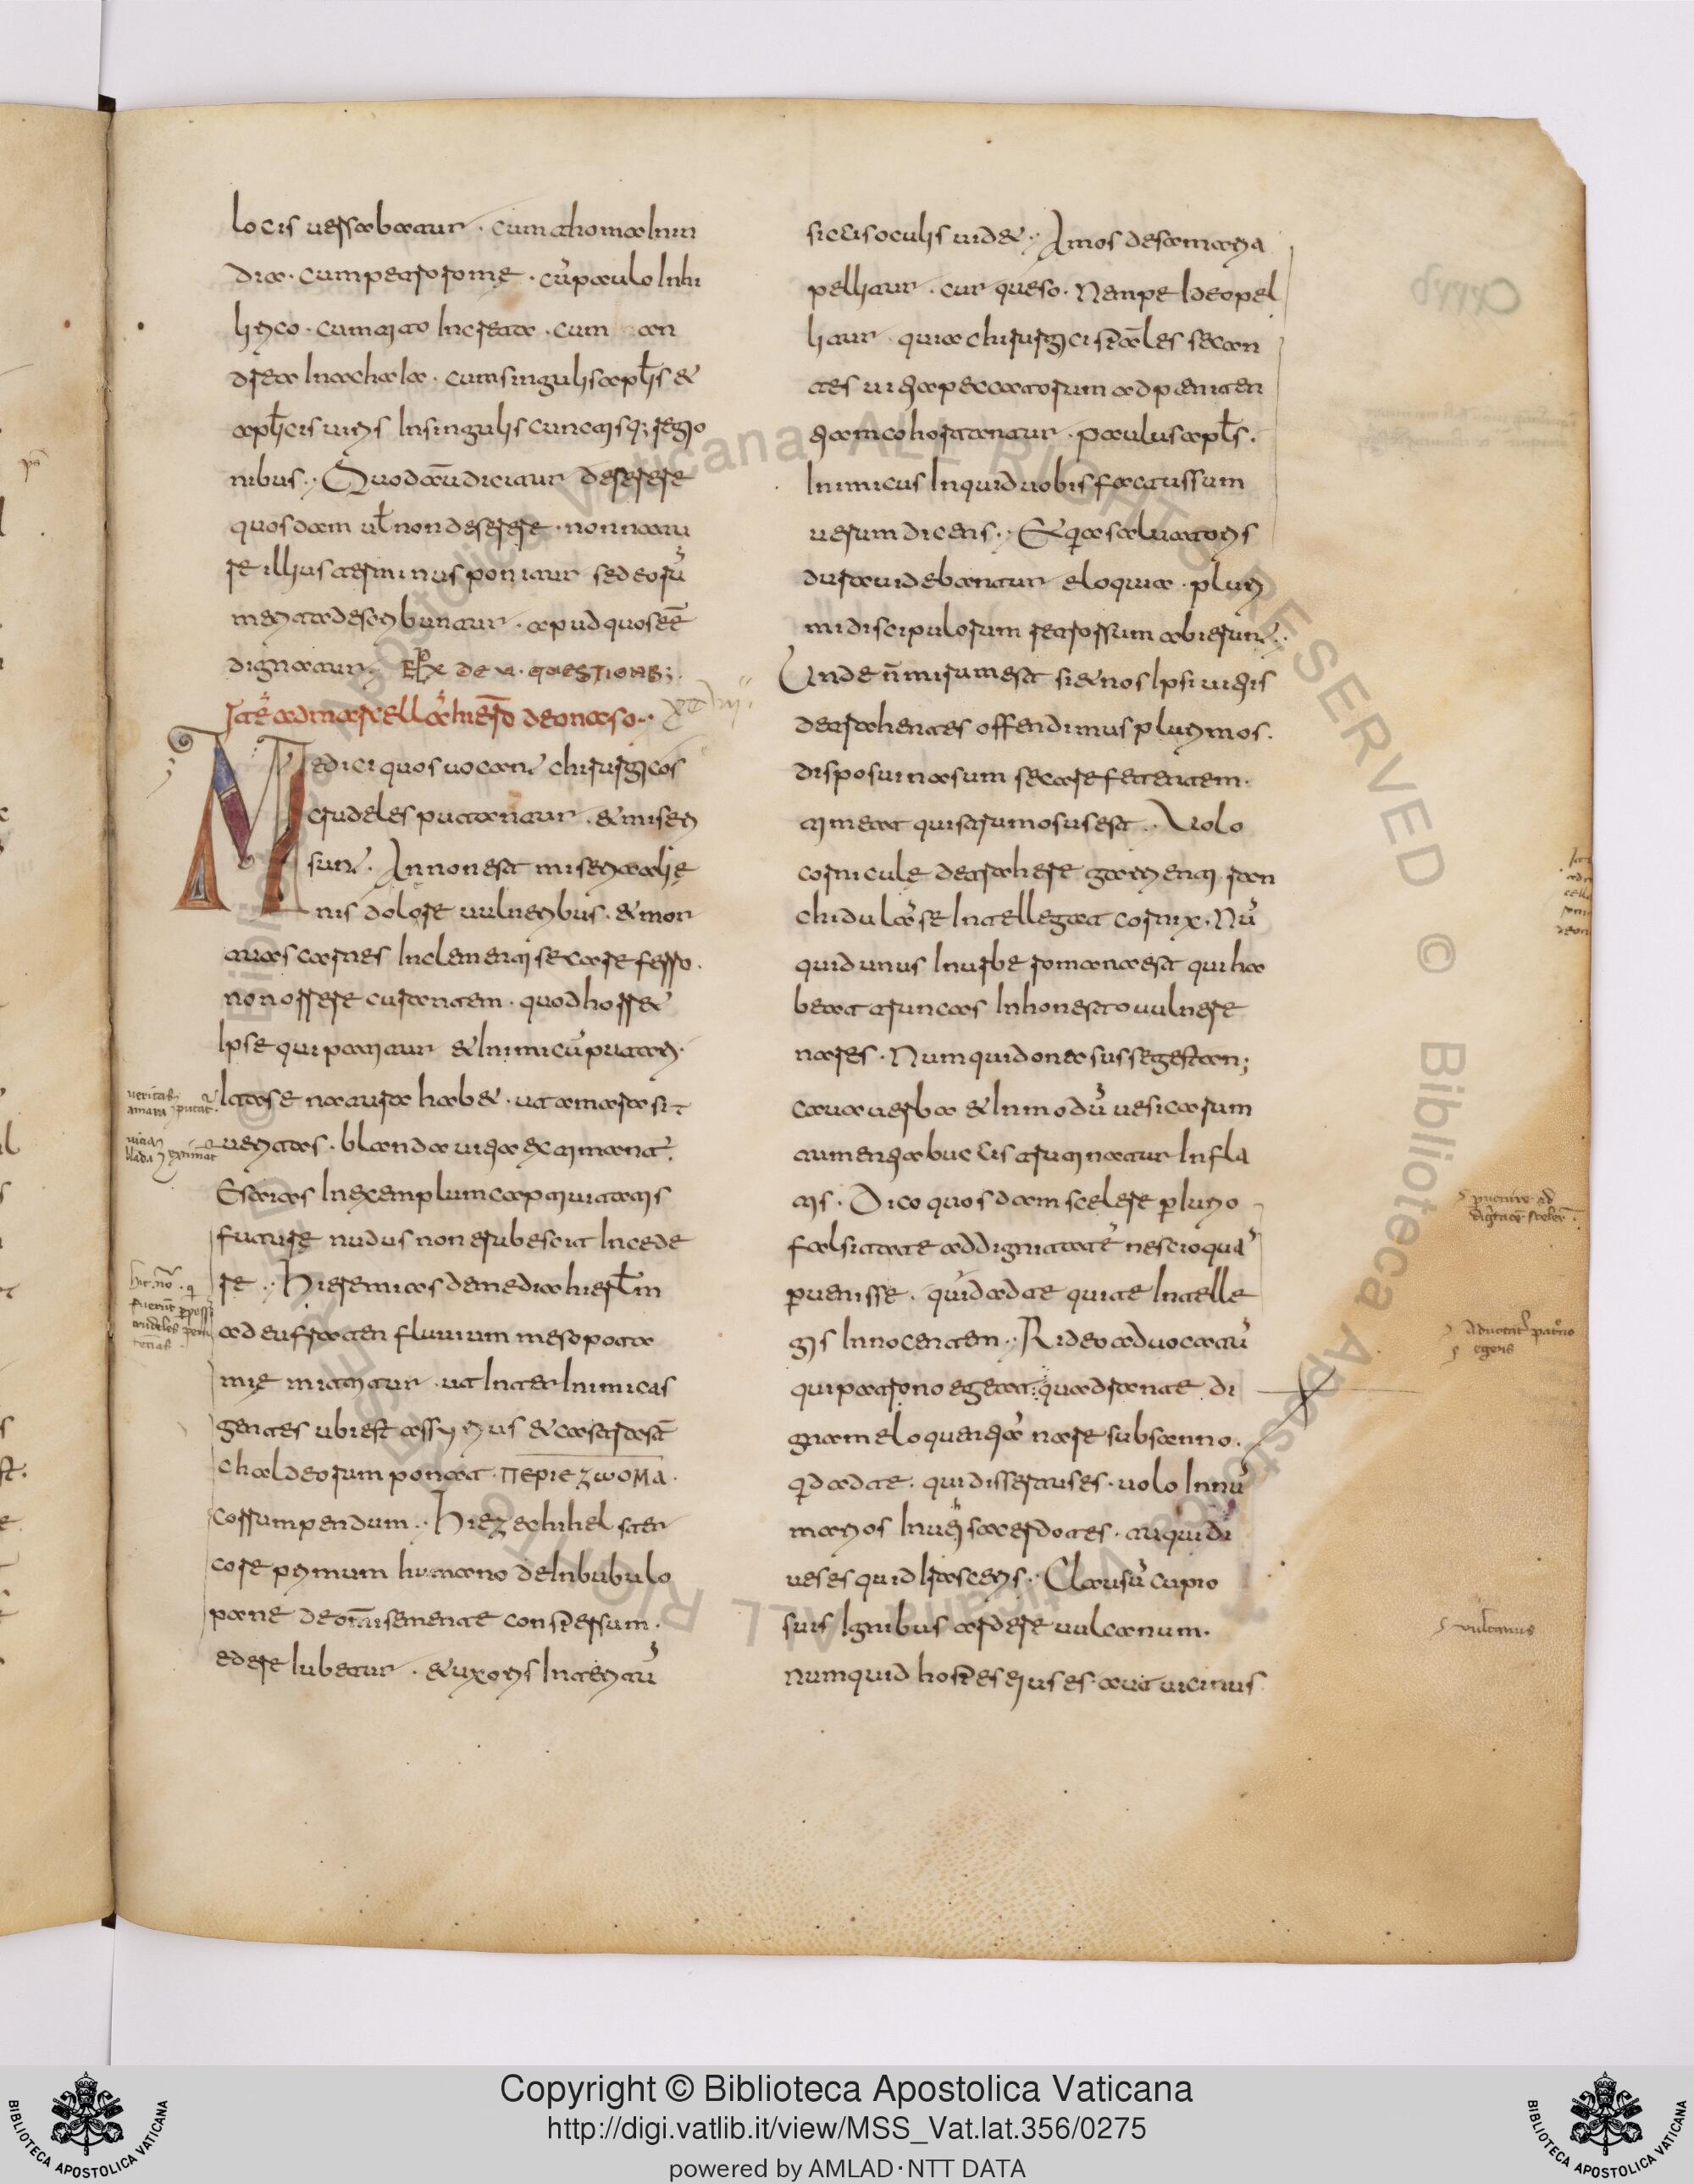 locis uersabatur · cum thoma In in
dia · cum petro rome · cũ paulo In hi
lirico · cum tito In creta · cum an
drea In achaia · cum singulis aplis &
aplicis uiris In singulis cunctisq; regio
nibus ·, Quod aũ dicitur deserere
quosdam ul non deserere · non natu
re illius terminus ponitur sed eorũ
merita describuntur · apud quos eē
dignatur ·, Expl de u · questionib;
Itē ad marcellā hierō de onaso ·,
Medici quos uocant chirurgicos
crudeles putantur · & miseri
sunt · An non est miseria alie
nis dolore uulneribus · & mor
tuas carnes Inclementi secare ferro ·
non orrere curantem · quod horret
Ipse qui patitur & Inimicũ putari ·
Ita se natura habet · ut amara sit
ueritas · blanda uitia extimant ·
Esaias In exemplum captiuitatis
future nudus non erubescit Incede
re ·, Hieremias de media hierlm
ad eufraten fluuium mesopota
mie mittitur · ut Inter Inimicas
gentes ubi est assyrius & castrasт
chaldeorum ponat · περιεzωομα ·
corrumpendum ·, Hiezechihel ster
core primum humano deIn bubulo
pane de om̄i semente conspersum ·
edere Iubetur · & uxoris Interitũ
siccis oculis uidet ·, Amos de samaria
pellitur · cur queso · Nempe Ideo pel
litur quia chirurgici spāles secan
tes uitia peccatorum ad peniten
tiam cohortantur · paulus apls ·
Inimicus Inquid uobis factus sum
uerum dicens ·, Et quia saluatoris
dura uidebantur eloquia · pluri
mi discipulorum retrorsum abierunt ·,
Unde n̄ mirum est si & nos Ipsi uitiis
detrahentes offendimus plurimos ·
disposui nasum secare fetentem ·
timeat qui strumosus est ·, Uolo
cornicule detrahere garrienti · ran
chidulā se Intellegat cornix · Nũ
quid unus In urbe romana est qui ha
beat truncas In honesto uulnere
nares · Numquid onasus segestan;
caua uerba & In modũ uesicarum
tumentia buccis trutinatur Infla
tis · Dico quosdam scelere periurio
falsitate ad dignitatē nescio quā
peruenisse · quid ad te qui te Intelle
gis Innocentem ·, Rideo aduocatũ
qui patrono egeat · quadrante di
gnam eloquentiā nare subsanno ·
qd ad te · qui dissertus es · uolo In nũ
marios Inuehi sacerdotes · tu qui di
ues es quid Irasceris ·, Clausũ cupio
suis Ignibus ardere uulcanum ·
numquid hospes eius es · aut uicinus